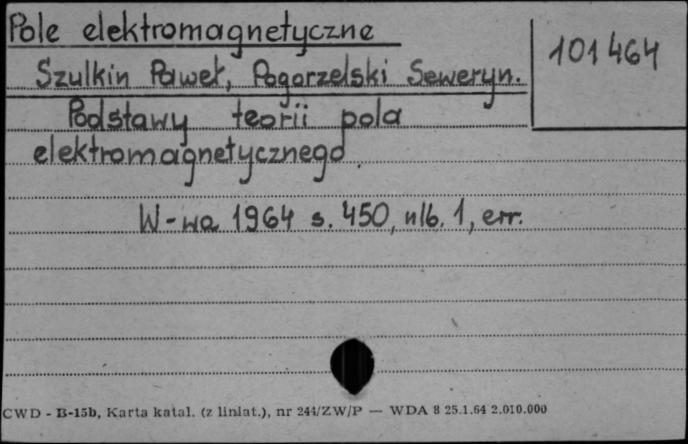 Pole elektromagnetyczne
101464
Szulkin Paweł, Pogorzelski Seweryn.
Podstawy teorii pola
elektromagnetycznego.
W-wa 1964 s. 450, nlb. 1, err.
CWD - B-15b, Karta katal. (z liniat.), nr 244/ZW/P — WDA 8 25.1.64 2.010.000